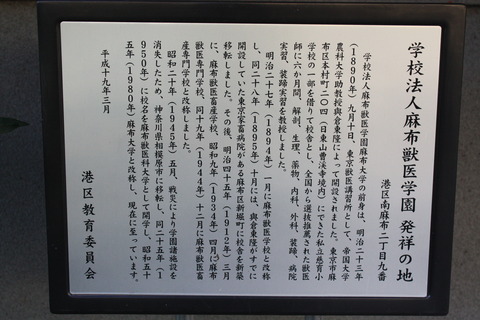 学校法人麻布獣医学園 発祥の地
港区南麻布二丁目九番
学校法人麻布獣医学園麻布大学の前身は、明治二十三年
(1890年)九月十日、東京獣医講習所として、帝国大学
農科大学助教授與倉東隆によって開設されました。東京市麻
布区本村町二〇四(日東山曹渓寺境内)にできた私立慈育小
学校の一部を借りて校舎とし、全国から選抜推薦された獣医
師に六か月間、解剖、生理、薬物、内科、外科、装蹄、病院
実習、装蹄実習を教授しました。
明治二十七年(1894年)一月に麻布獣医学校と改称
し、同二十八年(1895年)十月には、與倉東隆がすでに
開設していた東京家畜病院がある麻布区新堀町に校舎を新築
移転しました。その後、明治四十五年(1912年)三月
に、麻布獣医畜産学校、昭和九年(1934年)四月に麻布
獣医専門学校、同十九年(1944年)十二月に麻布獣医畜
産専門学校と改称しました。
昭和二十年(1945年)五月、戦災により学園諸施設を
消失したため、神奈川県相模原市に移転し、同二十五年(1
950年)に校名を麻布獣医科大学として開学し、昭和五十
五年(1980年)麻布大学と改称し、現在に至っています。
平成十九年三月
港区教育委員会